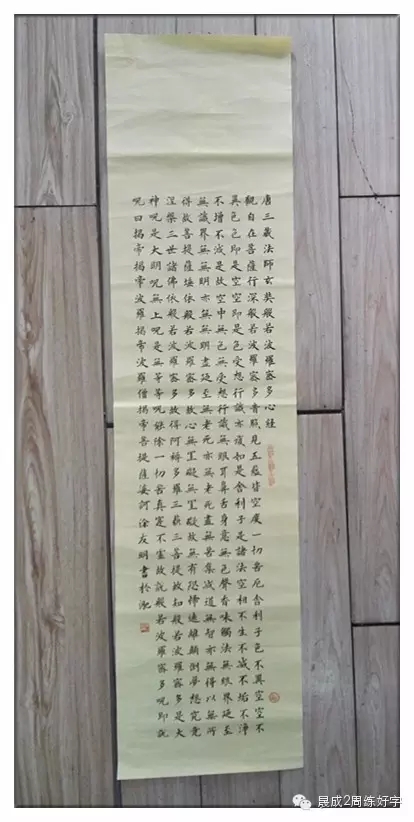 唐三藏法師玄奘般若波羅密多心經
觀自在菩薩行深般若波羅密多時照見五蘊皆空度一切苦厄舍利子色不異空空不
異色色即是空空即是色受想行識亦復如是舍利子是諸法空相不生不滅不垢不淨
不增不減是故空中無色無受想行識無眼耳鼻舌身意無色聲香味觸法無眼界廼至
無識界無無明亦無無明盡廼至無老死亦無老死盡無苦集滅道無智亦無得以無所
得故菩提薩埵依般若波羅密多故心無罣礙無罣礙故無有恐怖遠離顛倒夢想究竟
涅槃三世諸佛依般若波羅密多故得阿耨多羅三藐三菩提故知般若波羅密多是大
神呪是大明呪無上呪是無等等呪能除一切苦真實不虛故說般若波羅密多呪即說
呪曰揭帝揭帝波羅揭帝波羅僧揭帝菩提薩婆訶 徐友明書於滬
晟成2周练好字